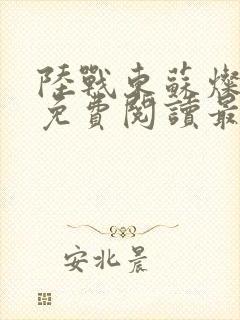 陸戰東蘇燦
免費閱讀最
安北晨